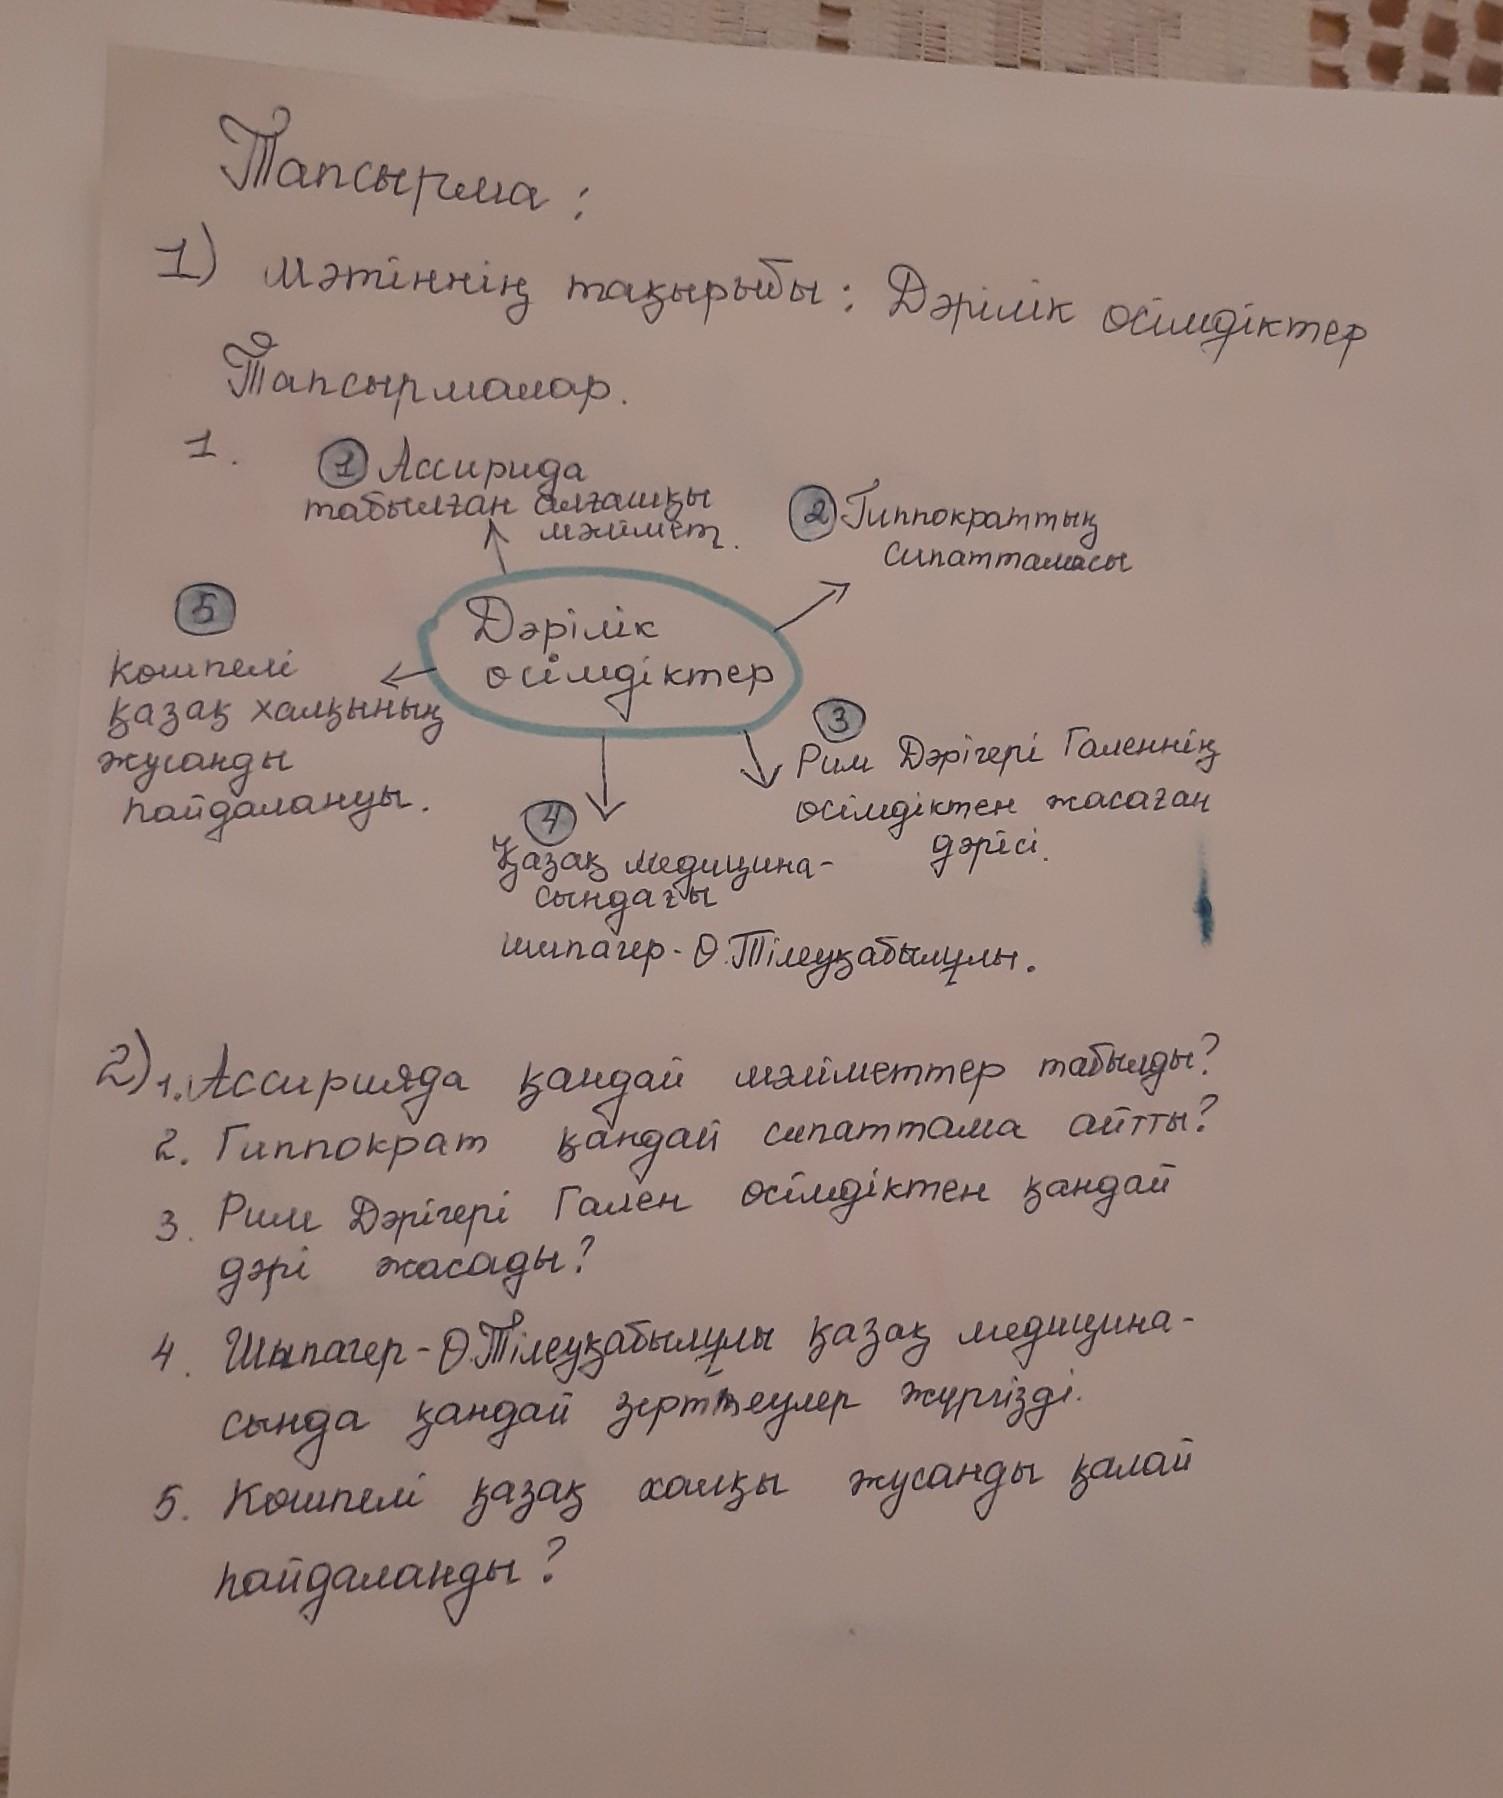 Тапсырма:
1) Мәтіннің тақырыбы: Дәрілік өсімдіктер
Тапсырмалар.
1.
1 Ассирида
табылған алғашқы
мәлімет.
2 Гиппократтың
сипаттамасы
Дәрілік
өсімдіктер
5
Көшпелі
қазақ халқының
жусанды
пайдалануы.
3
Рим Дәрігері Галеннің
өсімдіктен жасаған
дәрісі.
4
Қазақ медицина-
сындағы
шипагер-Ө.Тілеуқабылұлы.
2) 1. Ассирияда қандай мәліметтер табылды?
2. Гиппократ қандай сипаттама айтты?
3. Рим Дәрігері Гален өсімдіктен қандай
дәрі жасады?
4. Шыпагер-Ө.Тілеуқабылұлы қазақ медицина-
сында қандай зерттеулер жүргізді.
5. Көшпелі қазақ халқы жусанды қалай
пайдаланды?